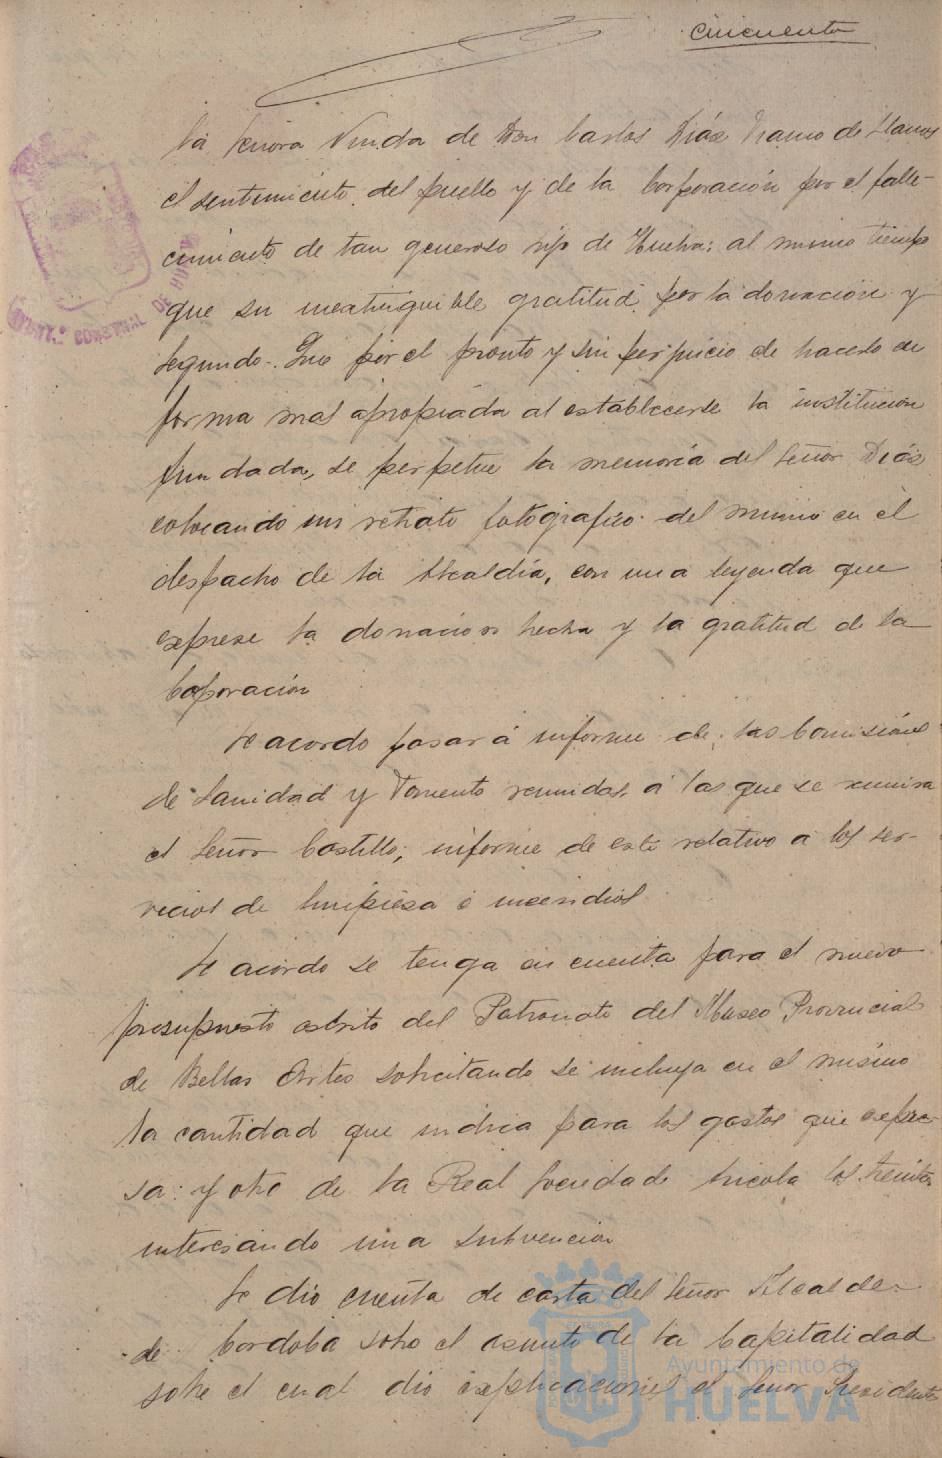 Cincuenta
la señora Viuda de Don Carlos Díaz Franco de Llanos
el sentimiento del pueblo y de la Corporación por el falle-
cimiento de tan generoso hijo de Huelva: al mismo tiempo
que su inextinguible gratitud por la donación y
segundo.- Que por el pronto y sin perjuicio de hacerlo en
forma mas apropiada al establecerse la institución
fundada, se perpetue la memoria del Señor Díaz
colocando un retrato fotografico del mismo en el
despacho de la Alcaldía, con una leyenda que
exprese la donacion hecha y la gratitud de la
Coporación
Se acordo pasar á informe de las Comisiones
de Sanidad y Fomento reunidas, a las que se reunira
el Señor Castillo, informe de este relativo a los ser-
vicios de limpieza é incendios.
Se acordo se tenga en cuenta para el nuevo
presupuesto escrito del Patronato del Museo Provincial
de Bellas Artes solicitando se incluya en el mismo
la cantidad que indica para los gastos que expre-
sa: y otro de la Real Sociedad los treinta
interesando una subvencion
Se dio cuenta de carta del Señor Alcalde
de Cordoba sobre el asunto de la Capitalidad
sobre el cual dio explicaciones el Señor Presidente
AYUNT.º CONST.NAL DE HUELVA
Ayuntamiento de
HUELVA